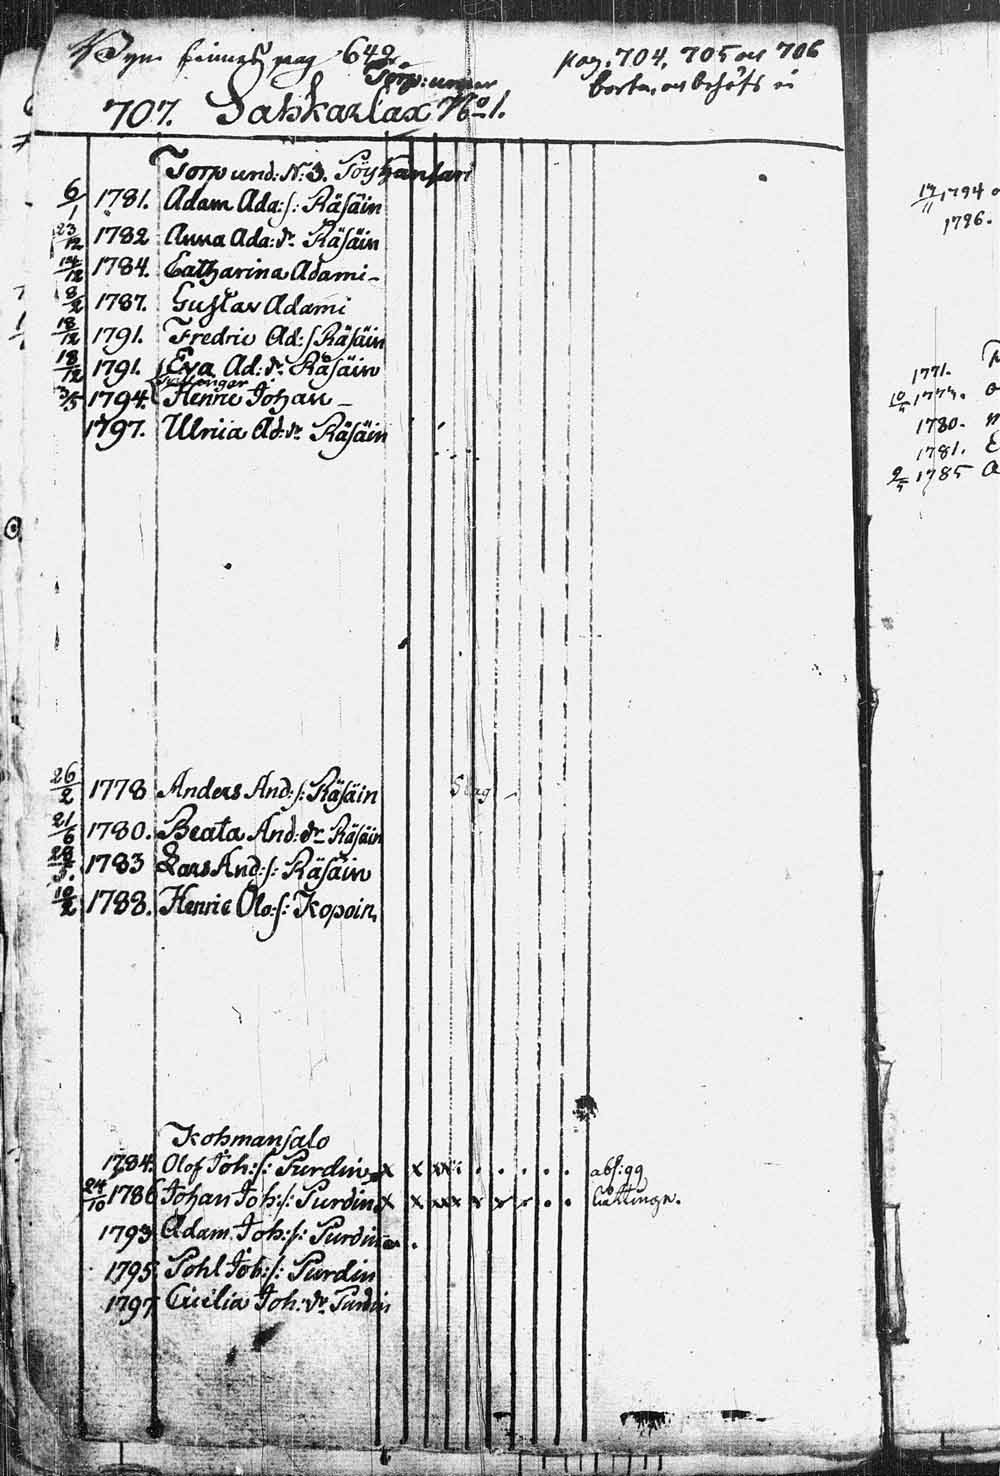 Byn finnes pag 649. pag. 704, 705 och 706
Torp: under borta, och behöfs ei
707. Sahkarlax No 1.
Torp und: N: 3. Pöyhänsari
6/1 1781. Adam Ada:s: Räsäin
23/12 1782 Anna Ada: dr Räsäin
14/12 1784. Catharina Adami -
8/2 1787. Gustav Adami
18/12 1791. Fredric Ad:s Räsäin
18/12 1791. Eva Ad: dr Räsäin
Tvillingar
3/5 1794. Henric Johan -
1797. Ulrica Ad: dr Räsäin
26/2 1778 Anders And:s: Räsäin Slag -
21/6 1780. Beata And: dr Räsäin
1783 Lars And:s: Räsäin
10/2 1788. Henric Olo:s: Kopoin,
Kohmansalo
1784. Olof Joh:s: Purdin x x xx . . . . . .
24/10 1786 Johan Joh:s: Purdin x x xx x x x . . .
1793 Adam Joh:s: Purdin .
1795 Pohl Joh:s: Purdin
1797 Cicilia Joh: dr Purdin
17/11 1794
1796.
1771.
10/5 1777.
1780.
1781.
2/5 1785